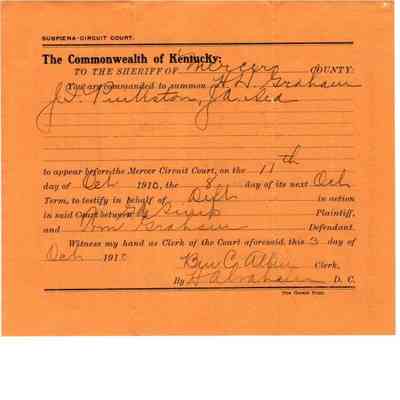 SUBPŒNA-CIRCUIT COURT.
The Commonwealth of Kentucky:
TO THE SHERIFF OF Mercer COUNTY:
You are commanded to summon H. D. Graham
J. T. Pinkston, J. A.
to appear before the Mercer Circuit Court, on the 11th
day of Oct 1910, the 8 day of its next Oct
Term, to testify in behalf of Deft in action
in said Court between Plaintiff,
and Wm Graham Defendant.
Witness my hand as Clerk of the Court aforesaid, this 3 day of
Oct 1910 Ben C. Allin Clerk,
By D. C.